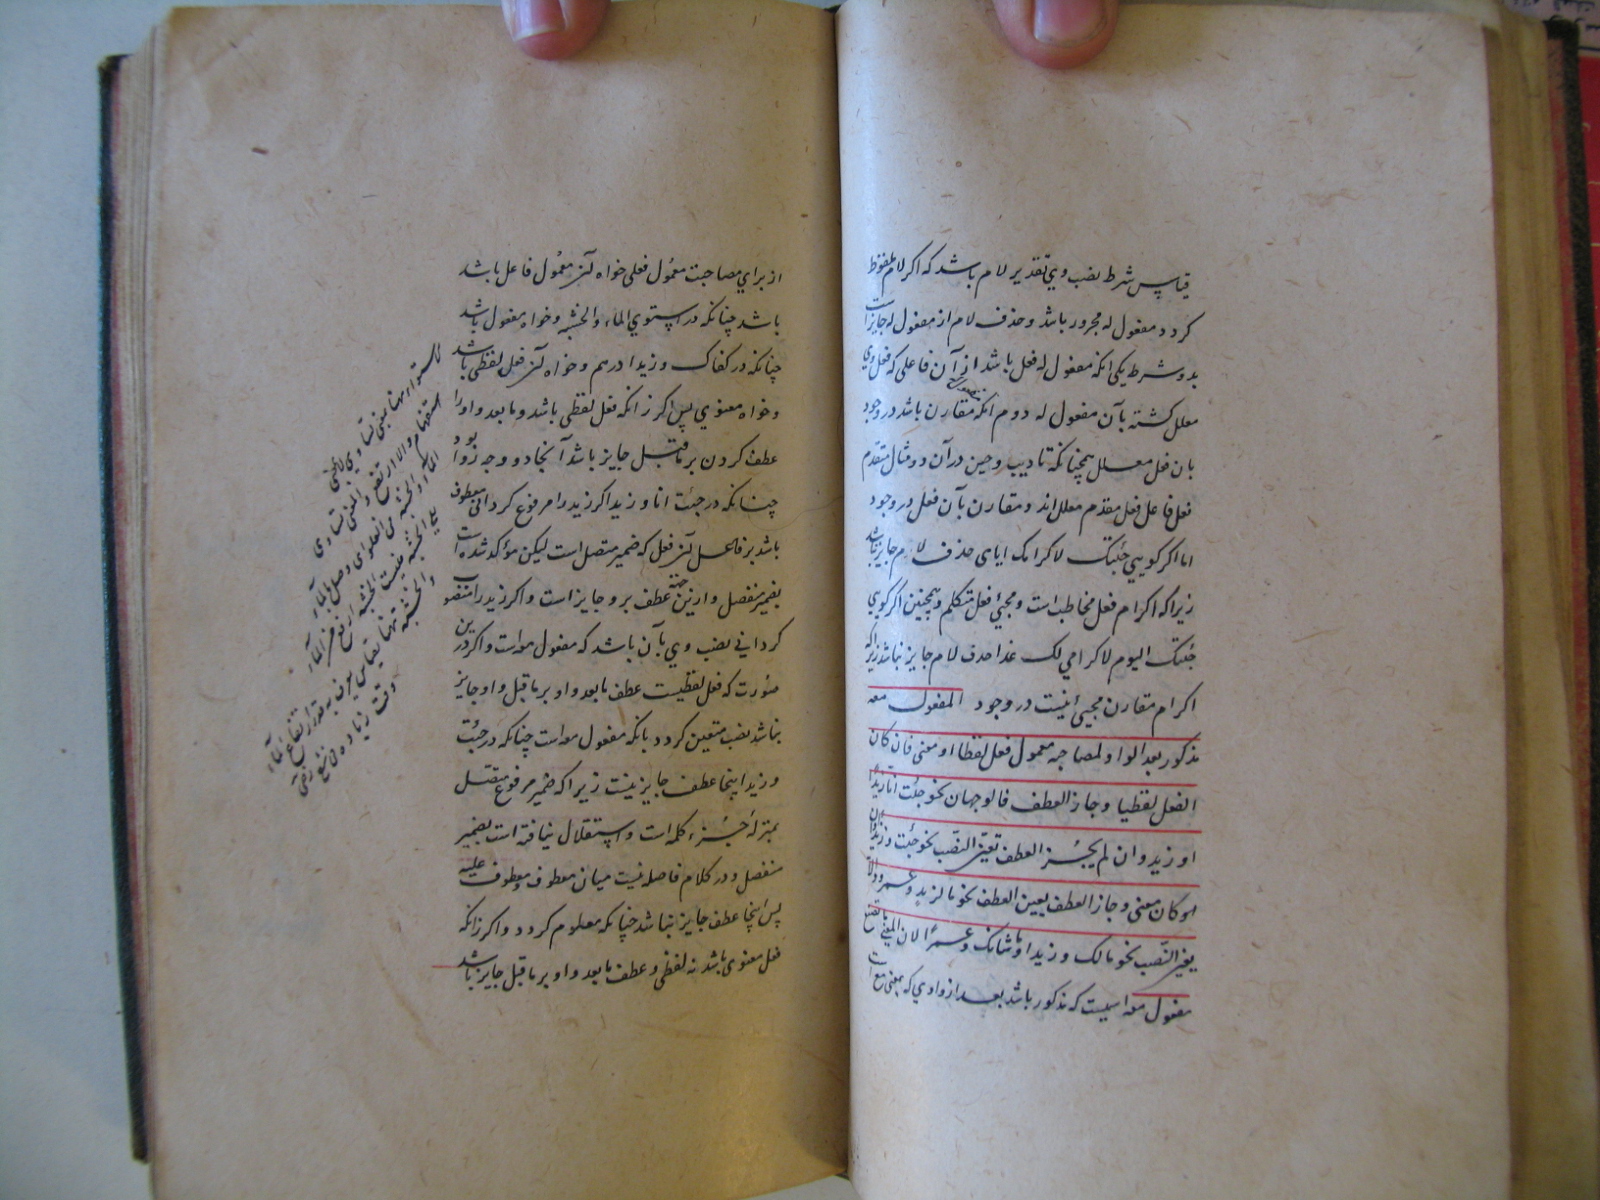 قیاس پس شرط نصب وی تقدیر لام باشد که اکر لام ملفوظ
کردد مفعول له مجرور باشد و حذف لام از مفعول له جایز است
بدو شرط یکی انکه مفعول له فعل باشد از آن فاعلی که فعل وی
معلل کشته بآن مفعول له دوم انکه مقارن باشد در وجود
بان فعل معلل همچنانکه تادیب و جبن در آن دو مثال متقدم
فعل فاعل فعل مقدم معلل اند و مقارن بآن فعل در وجود
اما اکر کویی جئتک لاکرامک ایای حذف لام جایز نباشد
زیرا که اکرام فعل مخاطب است و مجیٔ فعل متکلم و همچنین اکر کویی
جئتک الیوم لاکرامی لک غدا حذف لام جایز نباشد زیرا که
اکرام مقارن مجیٔ نیست در وجود المفعول معه
مذکور بعد الواو لمصاحبة معمول فعل لفظا او معنی فان کان
الفعل لفظیا و جاز العطف فالوجهان نحو جئت انا و زیدا
او زید و ان لم یجُز العطف تعیّن النصب نحو جئت و زیدا و ان
کان معنی و جاز العطف تعین العطف نحو ما لزید و عمرو و الا
تعین النّصب نحو مالک و زیدا و ما شانک و عمرًا لان المعنی ما تصنع
مفعول معه اسمیست که مذکور باشد بعد از واوی که بمعنی مع است
از برای مصاحبت معمُول فعلی خواه آن معمُول فاعل باشد
باشد چنانکه در استوی الماء والخشبة و خواه مفعول باشد
چنانکه در کفاک و زیدا درهم و خواه آن فعل لفظی باشد
و خواه معنوی پس اکر زانکه فعل لفظی باشد و ما بعد واو را
عطف کردن بر ما قبل جایز باشد آنجا دو وجه روا بود
چنانکه در جئت انا و زیدا اکر زید را مرفوع کردانی معطوف
باشد بر فاعل آن فعل که ضمیر متصل است لیکن مؤکد شده است
بضمیر منفصل و ازین جهة عطف برو جایز است و اکر زید را منصوب
کردانی نصب وی بآن باشد که مفعول معه است و اکر درین
صورت که فعل لفظیست عطف ما بعد واو بر ما قبل واو جایز
نباشد نصب متعین کردد بانکه مفعول معه است چنانکه در جئت
و زیدا اینجا عطف جایز نیست زیرا که ضمیر مرفوع متصل
بمنزلهٔ جُزء کلمه است و استقلال نیافته است بضمیر
منفصل و در کلام فاصله نیست میان معطوف و معطوف علیه
پس اینجا عطف جایز نباشد چنانکه معلوم کردد و اکر زانکه
فعل معنوی باشد نه لفظی و عطف ما بعد واو بر ما قبل جایز باشد